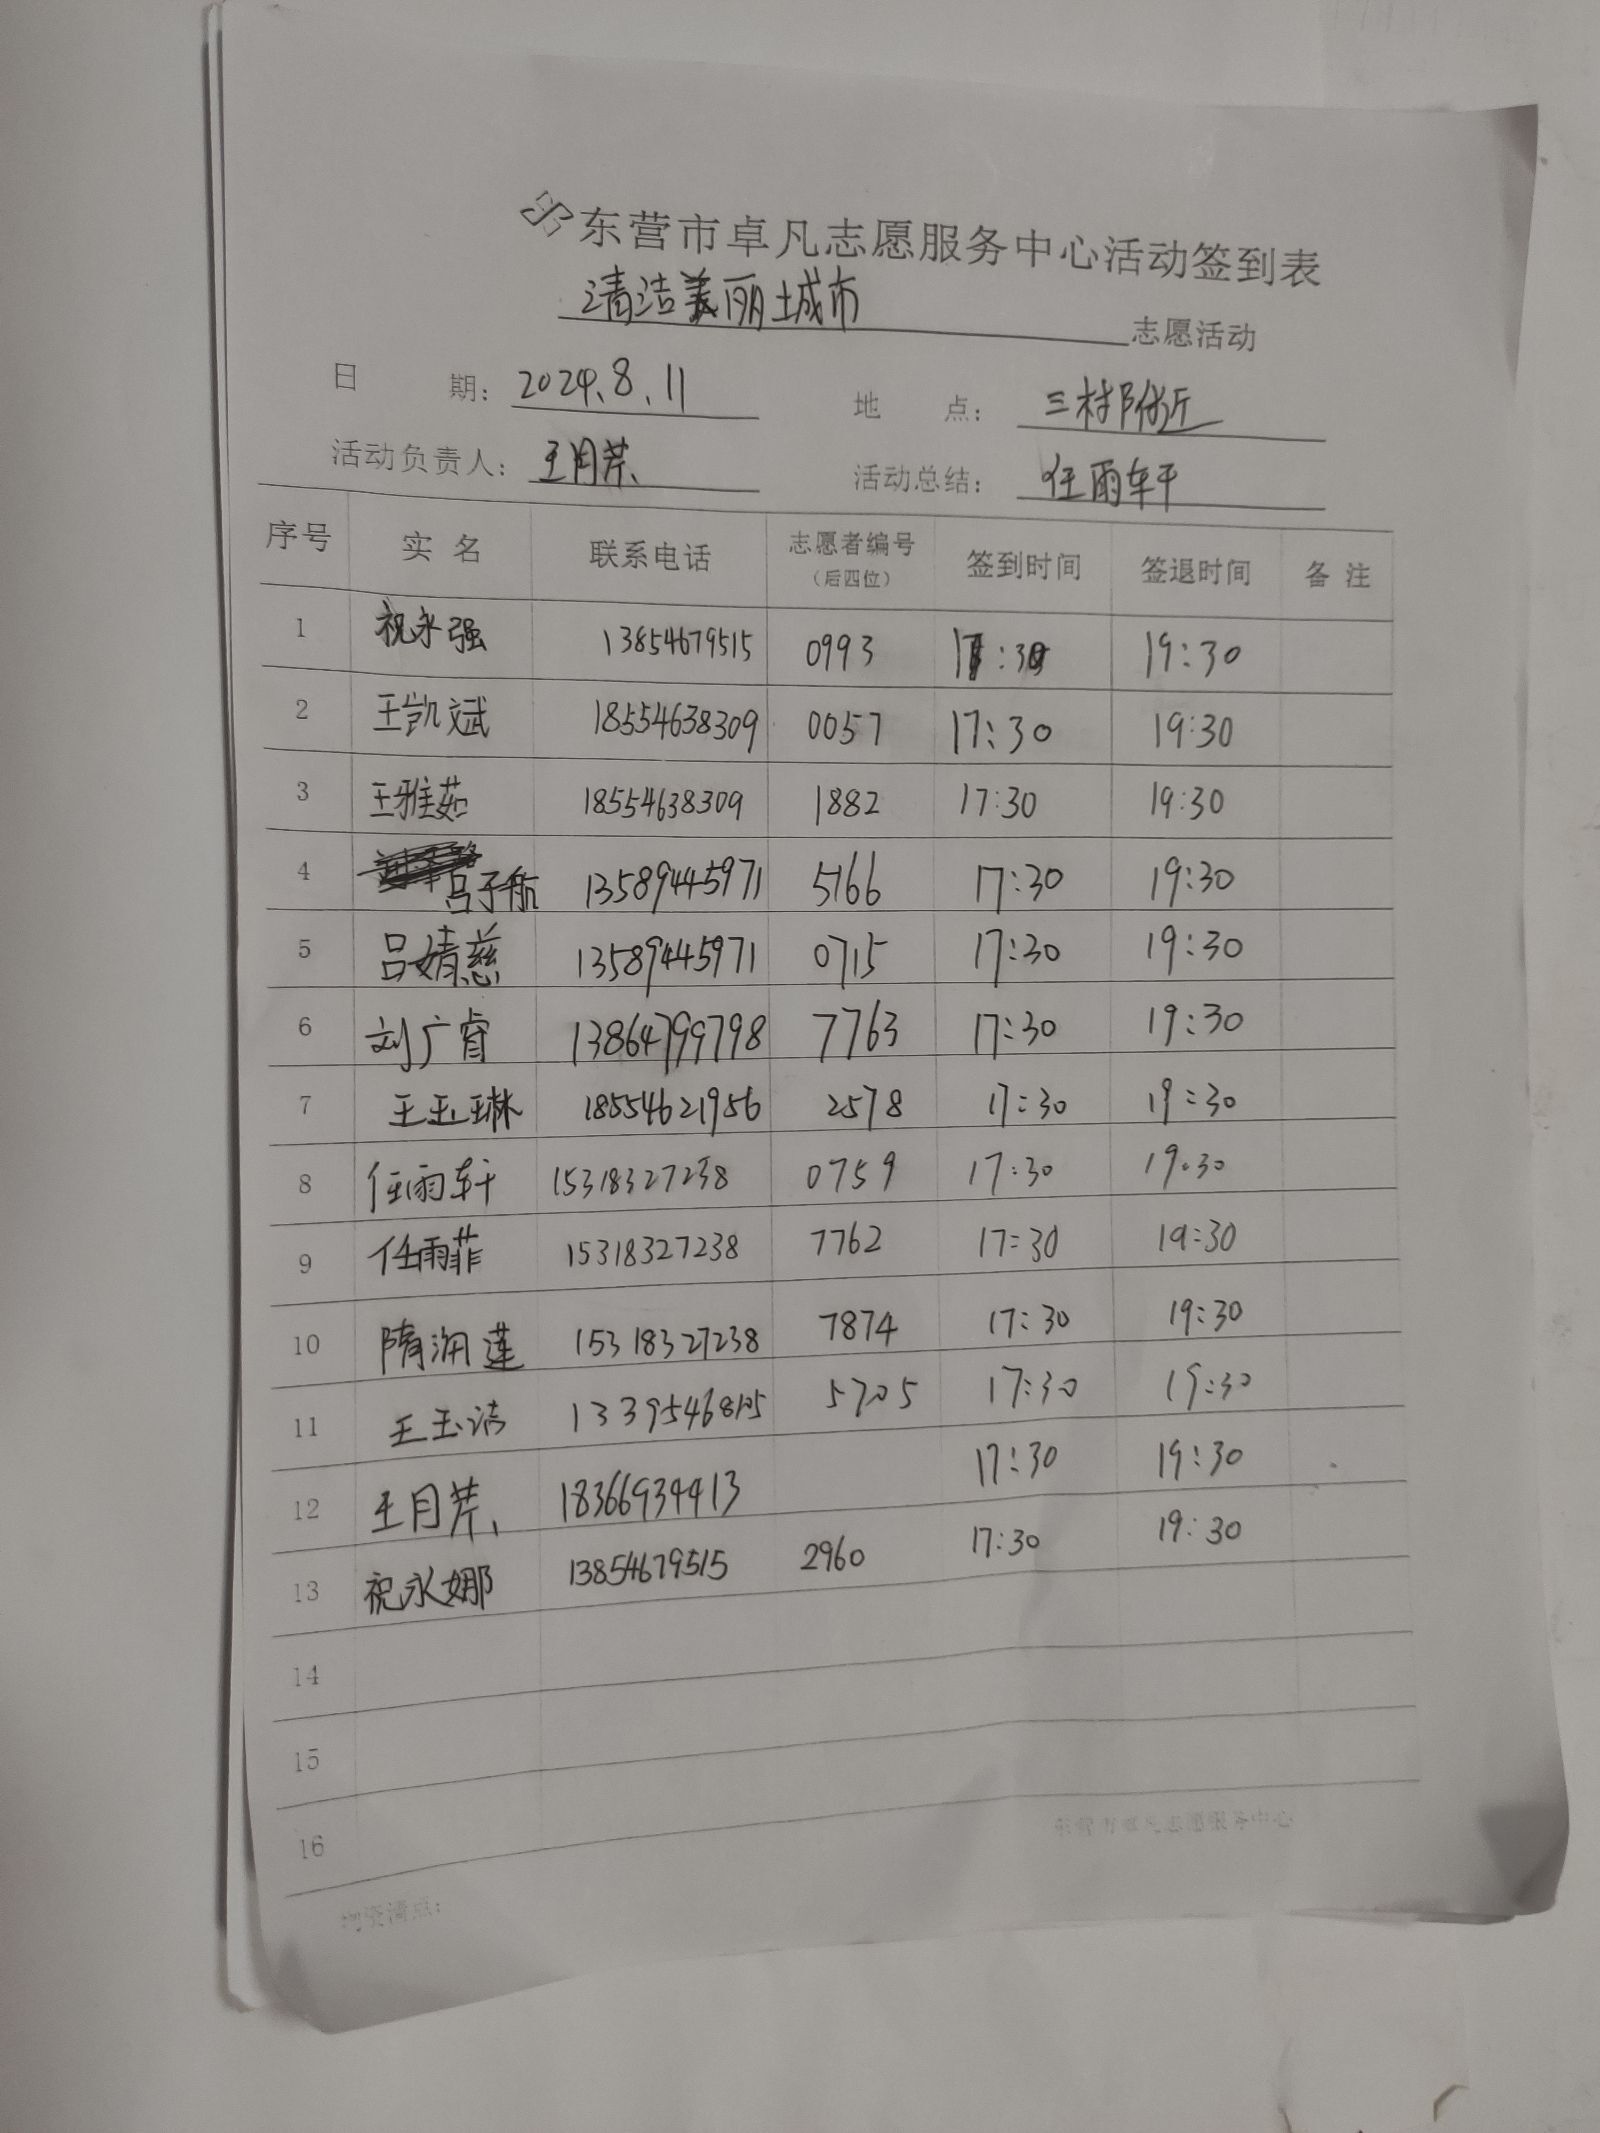 东营市卓凡志愿服务中心活动签到表
清洁美丽城市 志愿活动
日 期: 2024.8.11 地 点: 三村附近
活动负责人: 王月芹 活动总结: 任雨轩
序号 实 名 联系电话 志愿者编号 (后四位) 签到时间 签退时间 备 注
1 祝永强 13854679515 0993 17:30 19:30
2 王凯斌 18554638309 0057 17:30 19:30
3 王雅茹 18554638309 1882 17:30 19:30
4 吕子航 13589445971 5166 17:30 19:30
5 吕婧慈 13589445971 0715 17:30 19:30
6 刘广睿 13864799798 7763 17:30 19:30
7 王玉琳 18554621956 2578 17:30 19:30
8 任雨轩 15318327238 0759 17:30 19:30
9 任雨菲 15318327238 7762 17:30 19:30
10 隋润莲 15318327238 7874 17:30 19:30
11 王玉洁 13395468105 5705 17:30 19:30
12 王月芹 18366934413 17:30 19:30
13 祝永娜 13854679515 2960 17:30 19:30
14
15
16
东营市卓凡志愿服务中心
物资清点: